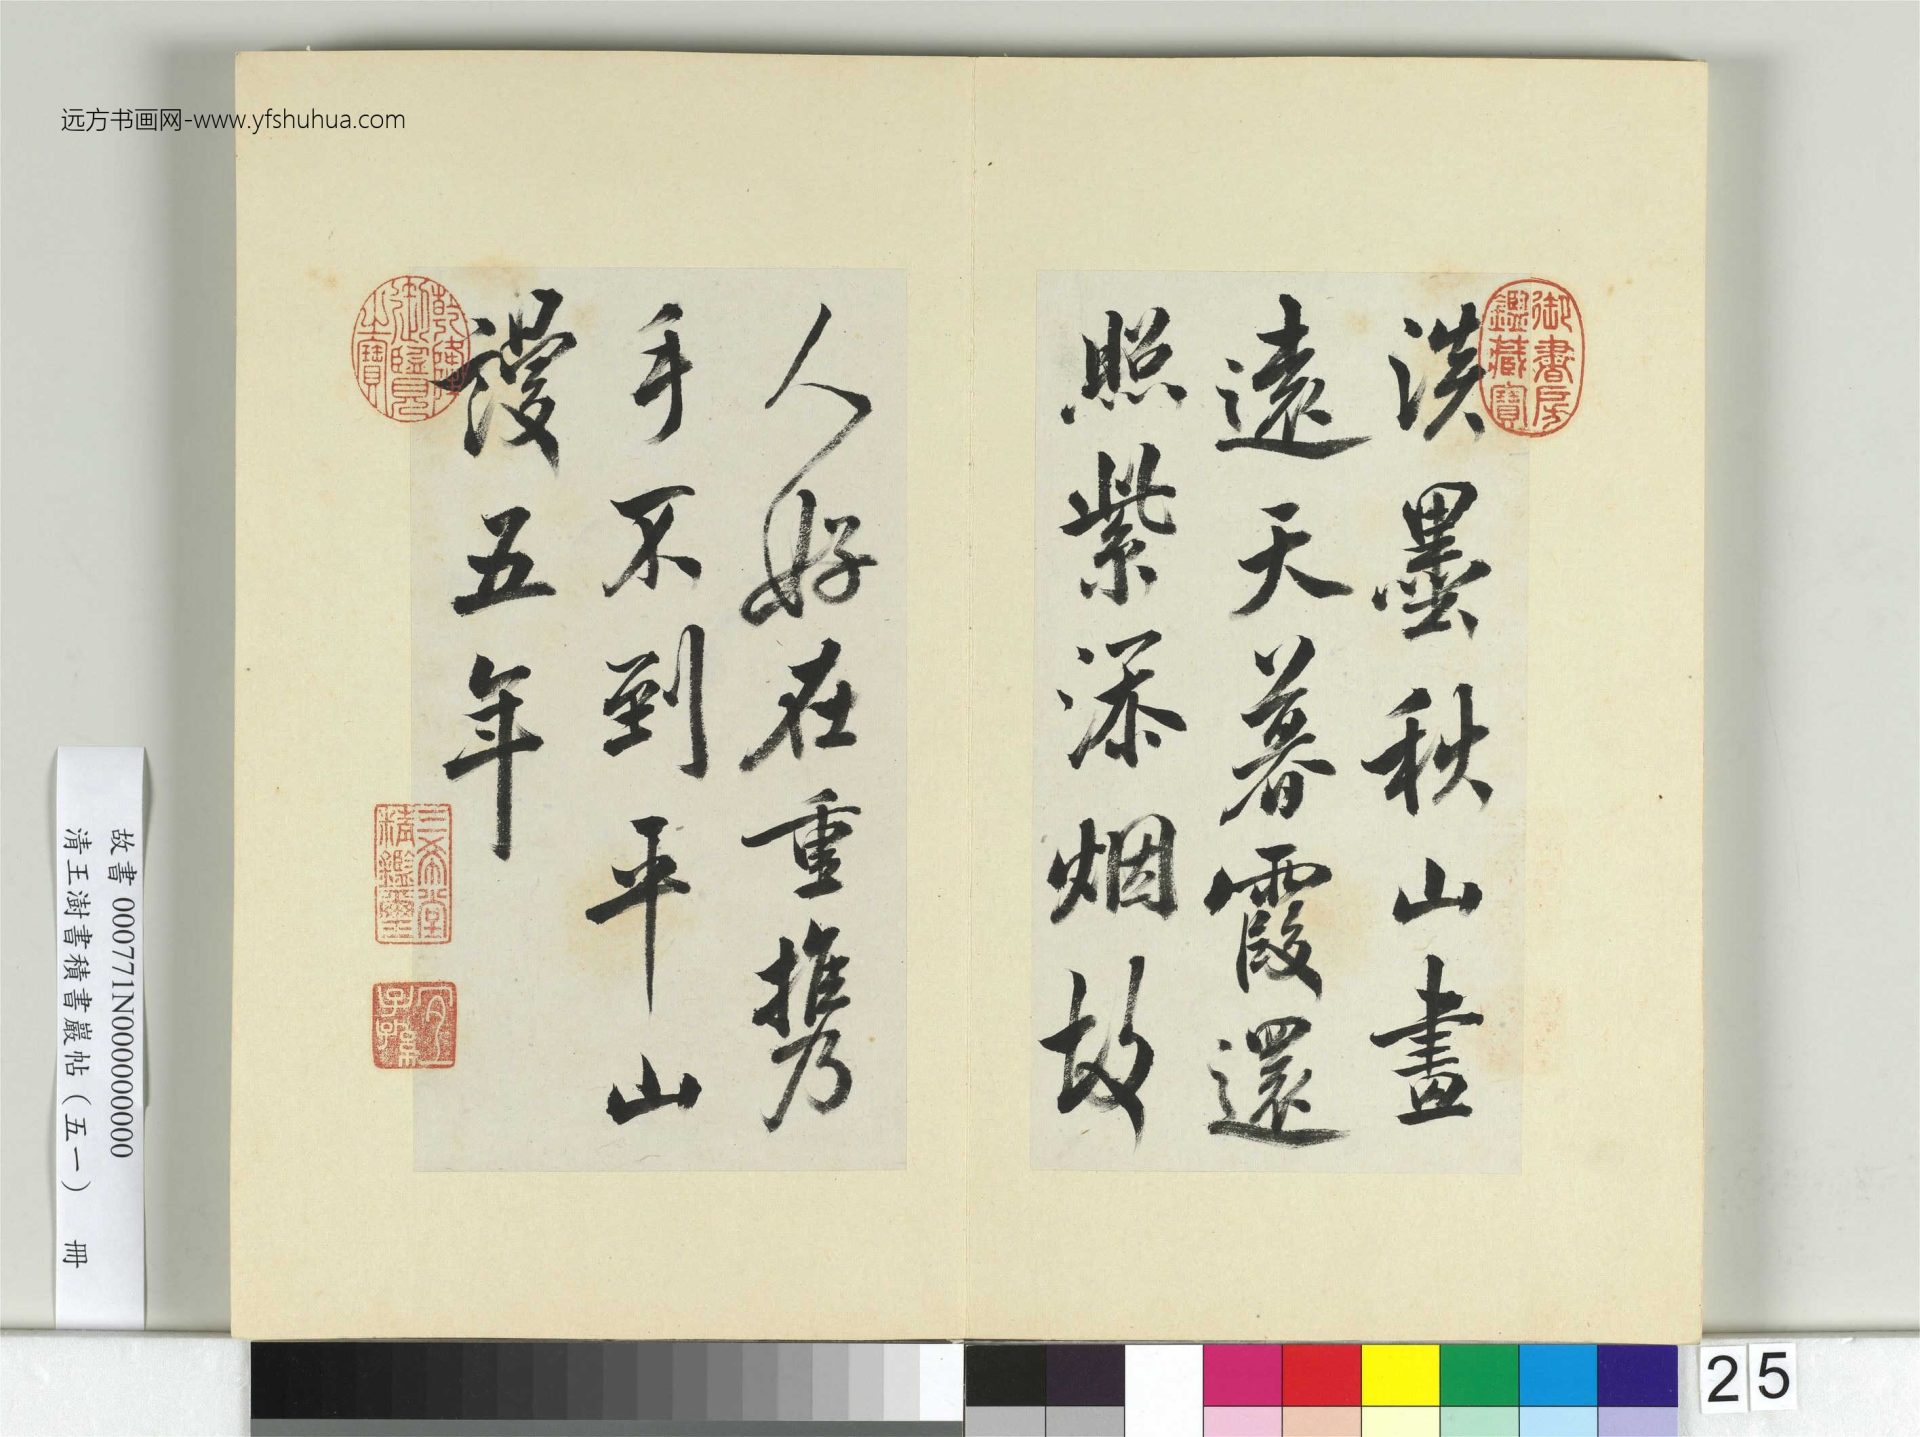 远方书画网-www.yfshuhua.com
御書房
鑑藏寶
淡墨秋山畫
遠天暮霞還
照紫添烟故
人好在重携
手不到平山
謾五年
乾隆
御覽
之寶
三希堂
精鑑璽
宜
子孫
故書 000771N000000000
清王澍書積書巖帖(五一) 冊
25